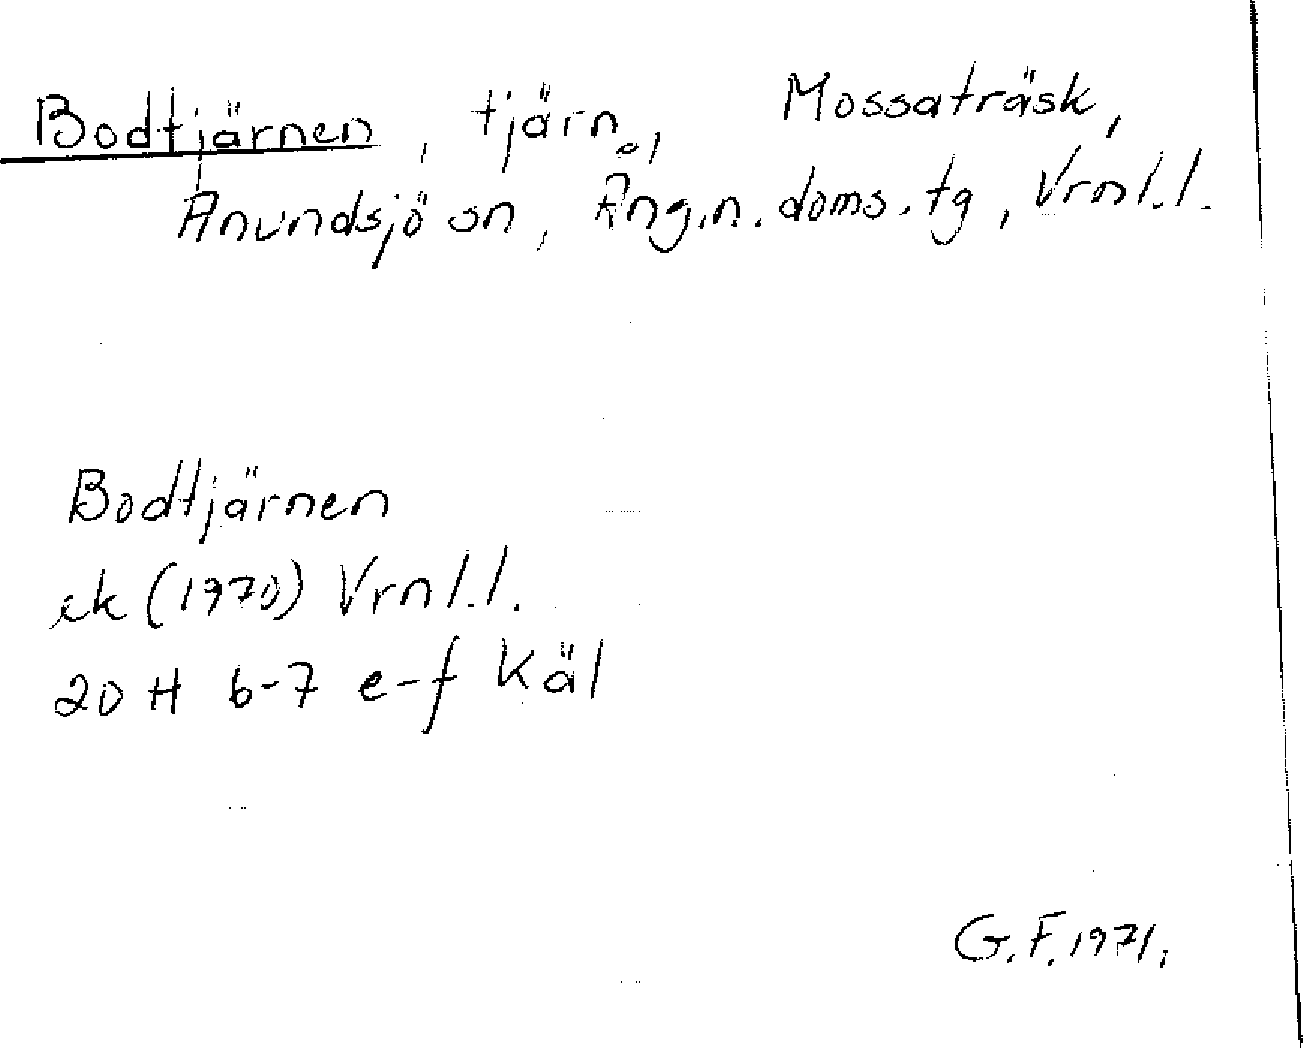 Bodtjärnen, tjärn, Mossaträsk,
Anundsjö sn, Ång.n. doms.tg, Vrnl.l.
Bodtjärnen
ek (1970) Vrnl.l.
20 H 6-7 e-f Käl
G.F. 1971.